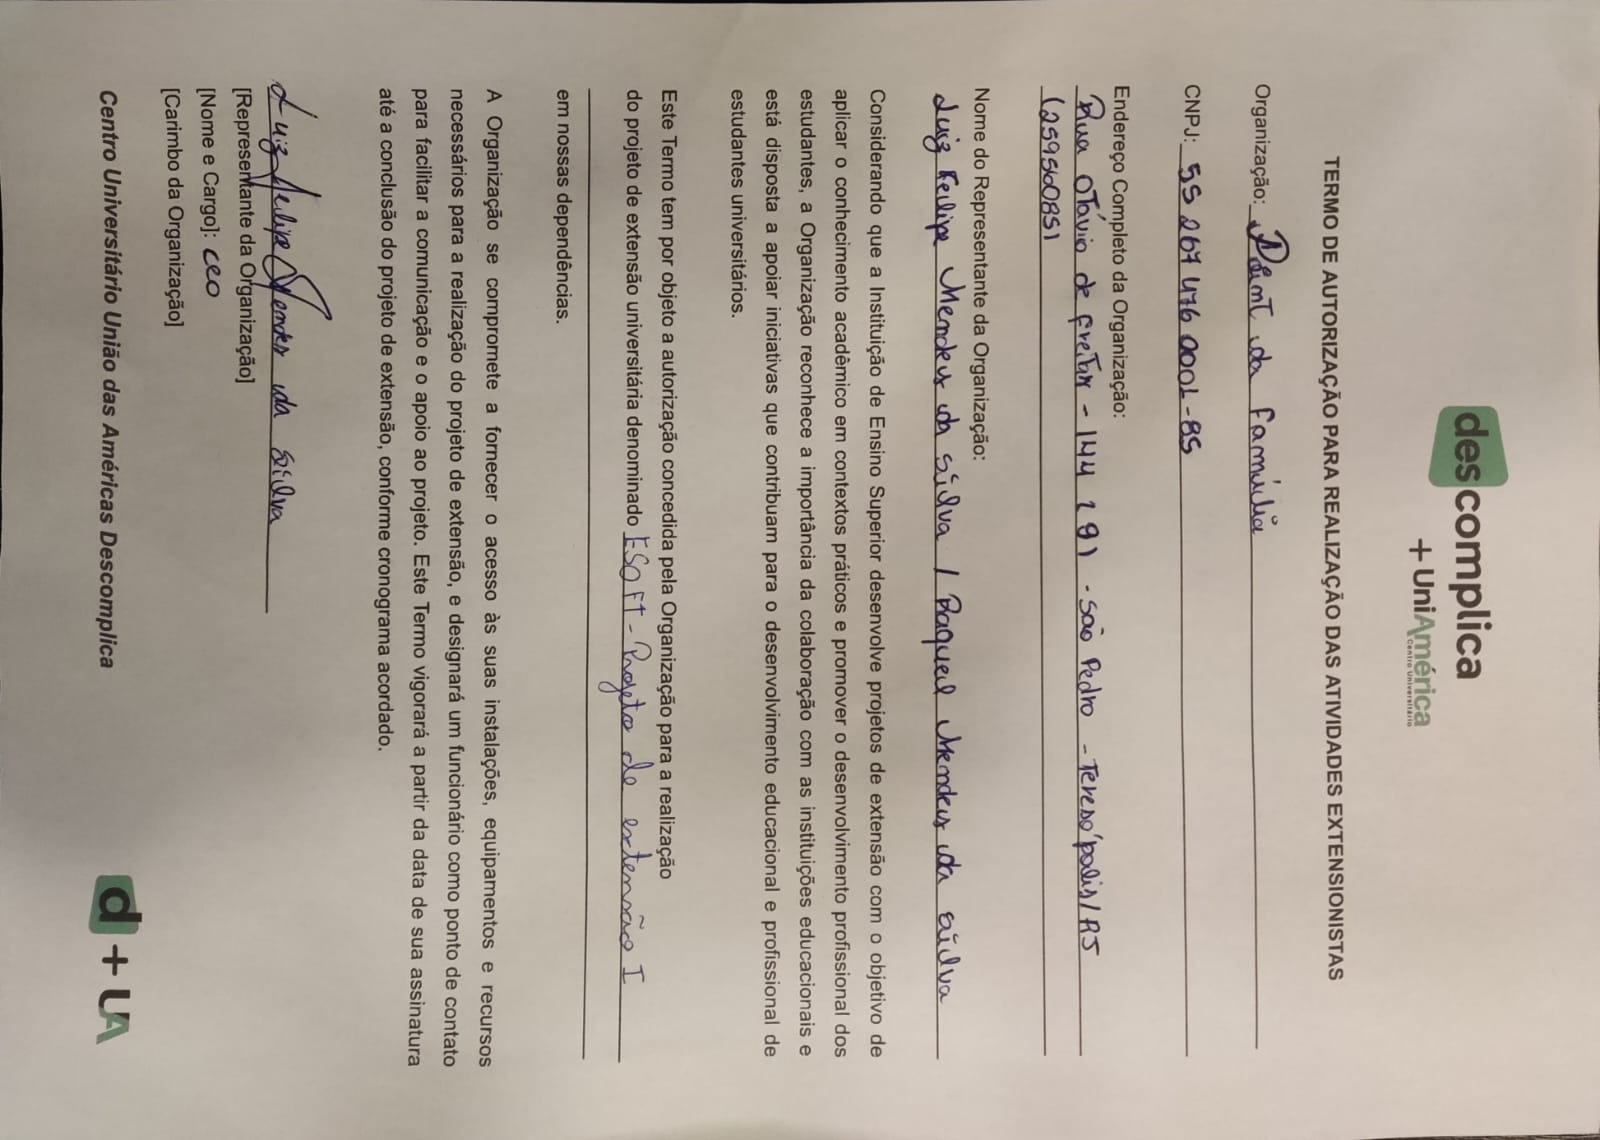 descomplica
+ UniAmérica
Centro Universitário
TERMO DE AUTORIZAÇÃO PARA REALIZAÇÃO DAS ATIVIDADES EXTENSIONISTAS
Organização: Point da Família
CNPJ: 55 267 476 0001-85
Endereço Completo da Organização:
Rua Otávio de freitas - 144 191 - São Pedro - Teresópolis/RJ
(25956085)
Nome do Representante da Organização:
Luiz Felipe Mendes da Silva / Raquel Mendes da Silva
Considerando que a Instituição de Ensino Superior desenvolve projetos de extensão com o objetivo de
aplicar o conhecimento acadêmico em contextos práticos e promover o desenvolvimento profissional dos
estudantes, a Organização reconhece a importância da colaboração com as instituições educacionais e
está disposta a apoiar iniciativas que contribuam para o desenvolvimento educacional e profissional de
estudantes universitários.
Este Termo tem por objeto a autorização concedida pela Organização para a realização
do projeto de extensão universitária denominado ESOFT - Projeto de extensão I
em nossas dependências.
A Organização se compromete a fornecer o acesso às suas instalações, equipamentos e recursos
necessários para a realização do projeto de extensão, e designará um funcionário como ponto de contato
para facilitar a comunicação e o apoio ao projeto. Este Termo vigorará a partir da data de sua assinatura
até a conclusão do projeto de extensão, conforme cronograma acordado.
Luiz Felipe Mendes da Silva
[Representante da Organização]
[Nome e Cargo]: CEO
[Carimbo da Organização]
Centro Universitário União das Américas Descomplica
d + UA